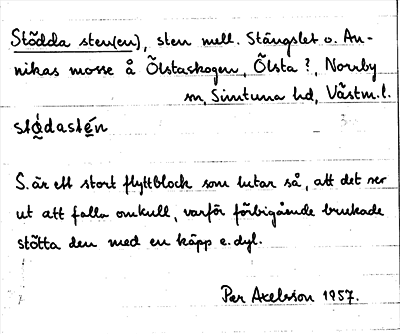 Stödda sten(en), sten mell. Stängslet o. An-
nikas mosse å Ölstaskogen, Ölsta ?, Norrby
sn, Simtuna hd, Västm.l.
stǫ́dastę́n
S. är ett stort flyttblock som lutar så, att det ser
ut att falla omkull, varför förbigående brukade
stötta den med en käpp e.dyl.
Per Axelsson 1957.